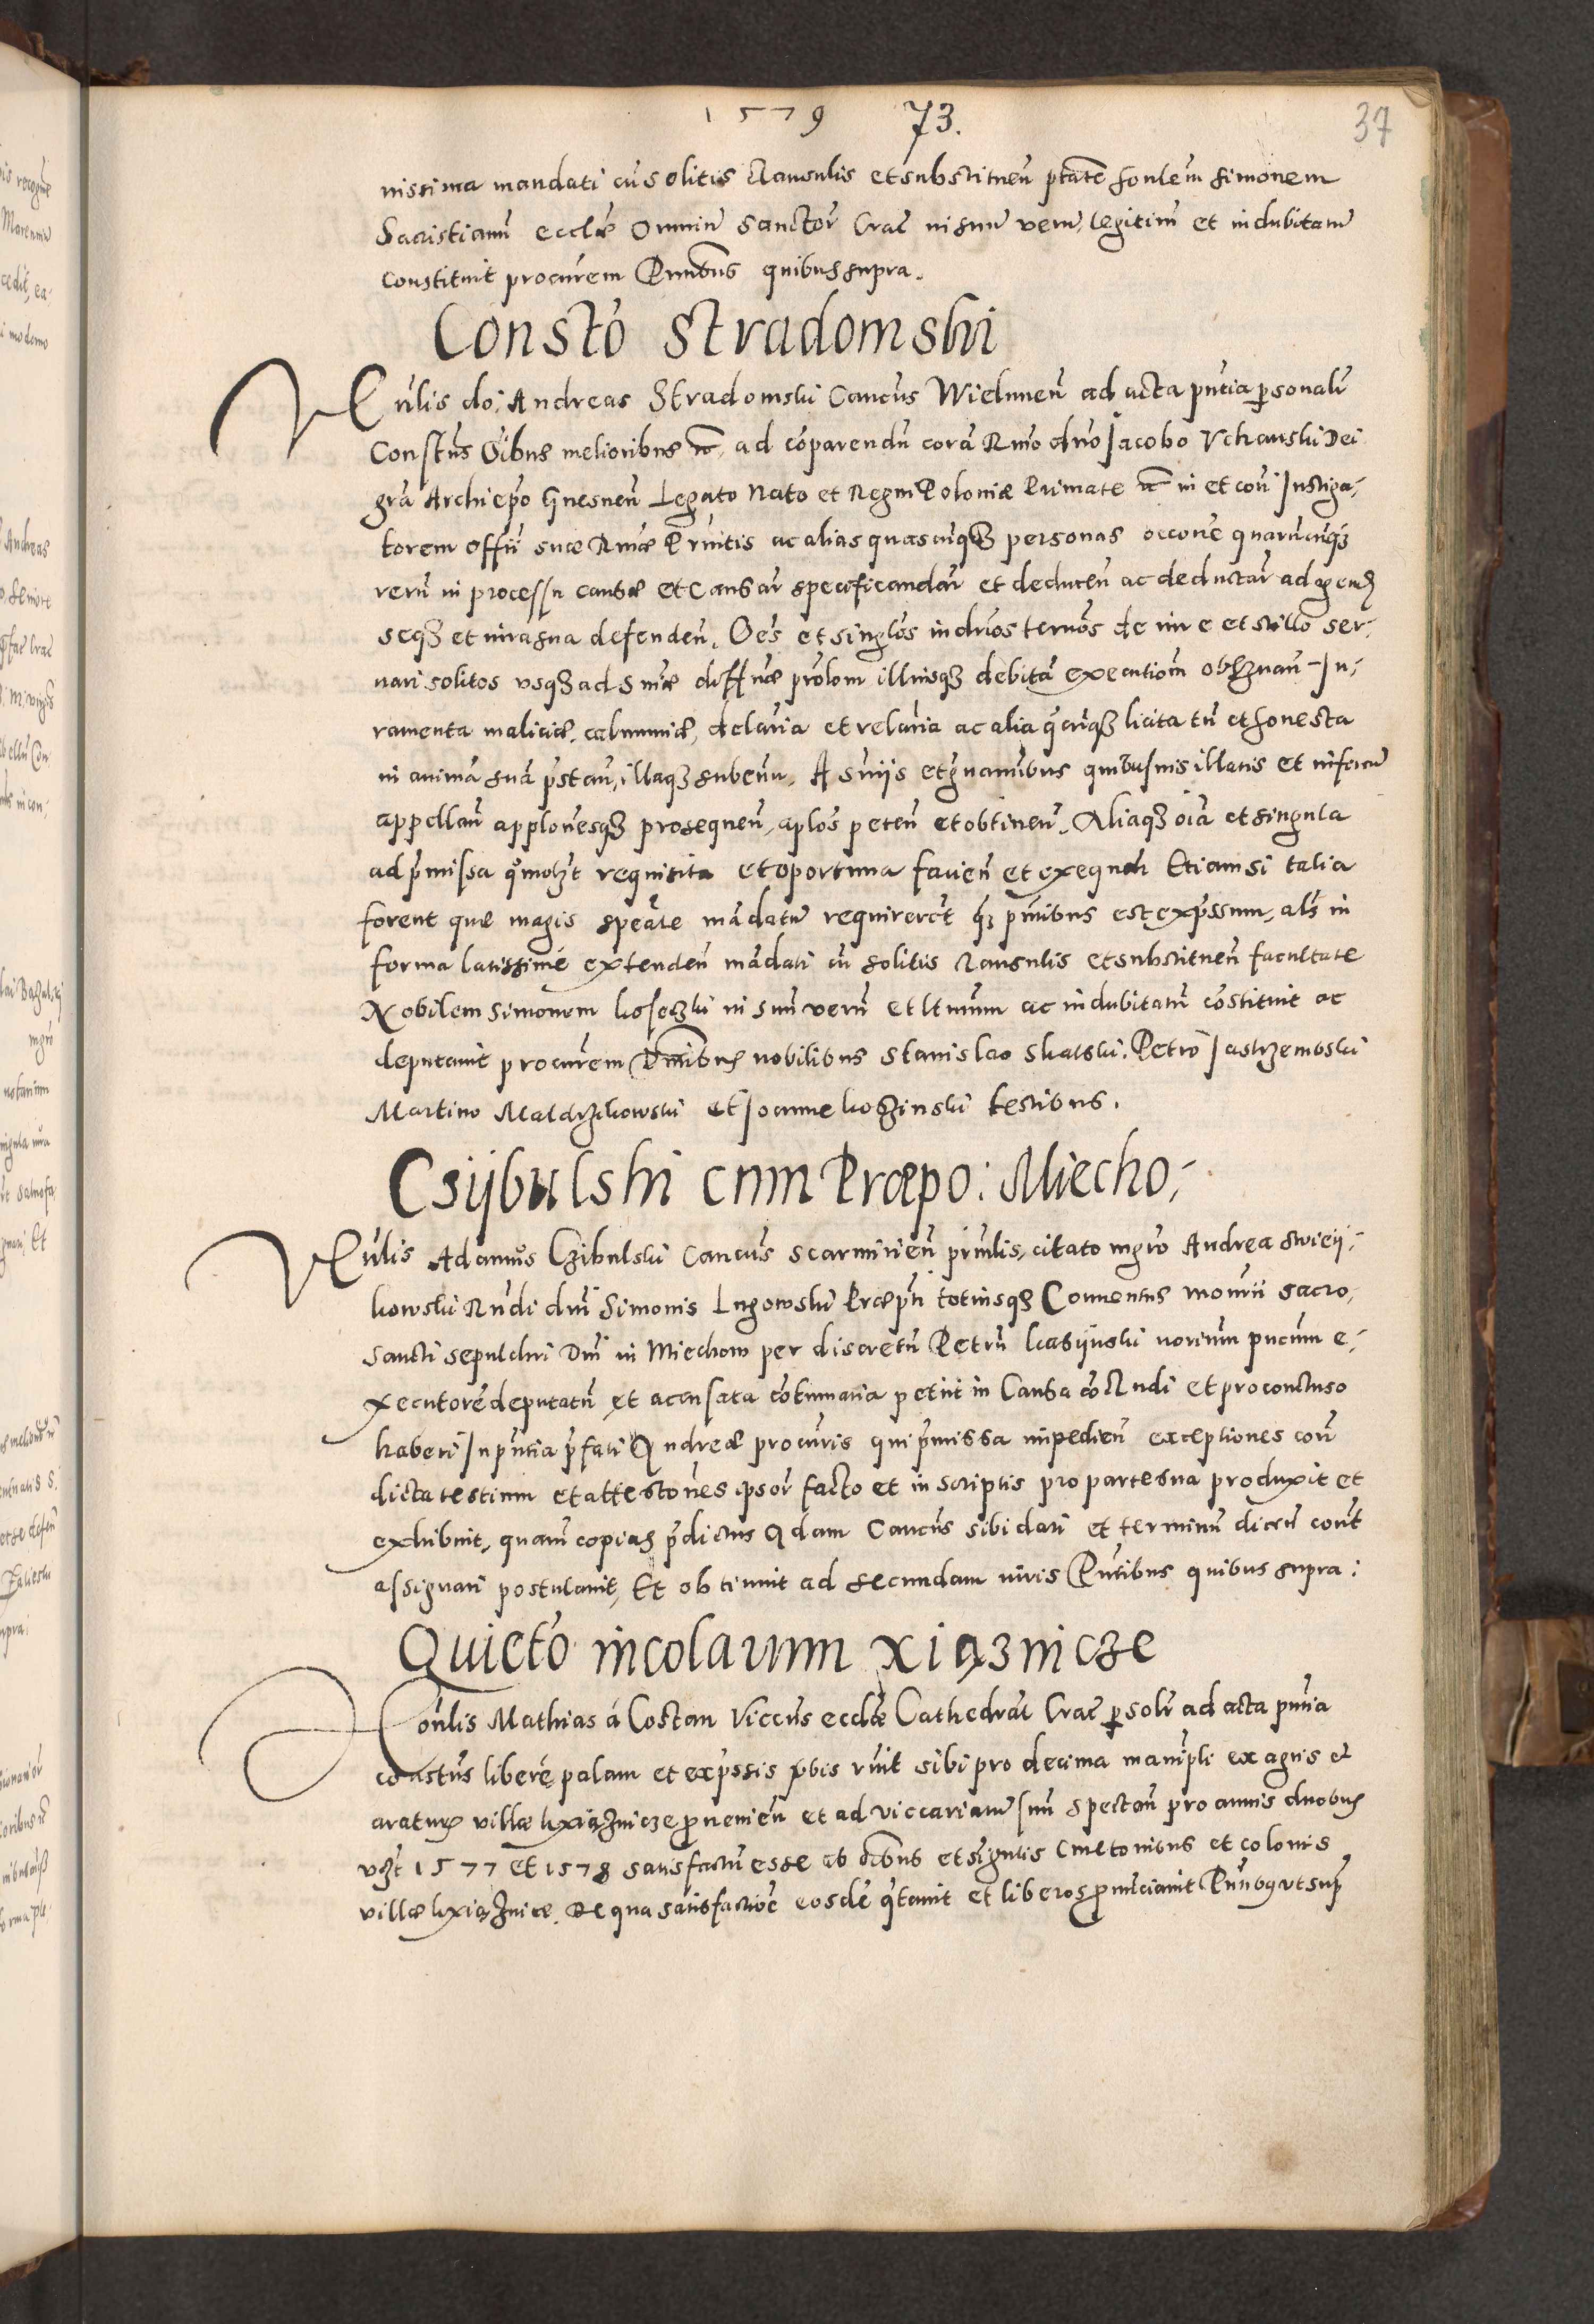 1579 73.
37
nissima mandati cū solitis clausulis et substituen̄ ptatē honlem Simonem
Sacristianū eccłæ Omniū Sanctor̄ Crac̄ in suū verū, legitim̄ et indubitatū
constituit procūrem Pn̄tibus quibus supra.
Constō Stradomski
Vēnlis do: Andreas Stradomski Canc̄us Wielunen̄ ad acta pn̄tia psonalr̄
Constus Oībus melioribus etc̄, ad cōparendū corā Rm̄o dn̄o Jacobo Vchanski Dei
grā Archiepō Gnesnen̄ Legato Nato et Regni Poloniæ Primate etc̄ in et con̄ Instiga-
torem Offīi suæ Rm̄æ Prn̄itis ac alias quascūqȝ personas occōne quarūcūqȝ
rerū in processu causæ et causar̄ specificandar̄ et deducen̄ ac deductar̄ ad agendū
seqȝ et iura sua defenden̄. Oēs et singlōs iudrīos termōs de iure et stillo ser-
uari solitos vsqȝ ad sniæ diffn̄æ prōlom illiusqȝ debitā executiom̄ obseruan̄ Iu-
ramenta maliciæ, calumniæ, delatīa et relatīa ac alia q̄cūqȝ licita tn̄ et honesta
in animā suā p̄stan̄, illaqȝ subeun̄. A sn̄ijs et grauanībus quibusuis illatis et inferen̄
appellan̄ applonesqȝ prosequen̄, aplōs peten̄ et obtinen̄. Aliaqȝ oīa et singula
ad p̄missa quōmolȝt requisita et oportuna facien̄ et exequen̄ Etiamsi talia
forent quæ magis speāle mādatū requirerēt qȝ pn̄tibus est exp̄ssum, als̄ in
forma latissimé extenden̄ mādati cū solitis clausulis et substituen̄ facultate
Nobilem Simonem koseczki in suū verū et ltimum ac indubitatū cōstituit ac
deputauit procūrem Pn̄tibus nobilibus Stanislao Skarski. Petro Jastrzembski
Martino Maldrzikowski et Joanne koszinski testibus.
Csijbulski cum Præpo: Miecho,-
Vēnlis Adamus Czibulski Canc̄us Scarmirien̄ prn̄lis, citato mgrō Andrea Swieij-
kowski Rn̄di dn̄i Simonis Lugowski Præpti totiusqȝ Conuentus mon̄rii sacro,
Sancti sepulchri Dn̄i in Miechow per discretū Petrū kasijnski norium pucum e-
xecutorē deputatū et acensata cōtumatia petiit in Causa cōcludi et pro concluso
haberi In pn̄tia p̄fati Andreæ procūris qui p̄missa impedien̄ exceptiones con̄
dicta testium et attestōnes ipsor̄ facto et in scriptis pro parte sua produxit et
exhibuit, quarū copias p̄dictus Adam Canc̄us sibi dari et terminū dicen̄ cont̄
assignari postulauit, Et obtinuit ad secundam iuris Pn̄tibus quibus supra:
Quietō incolarum xiązniczę
Honlis Mathias á Costan Viccūs eccłæ Cathedrał Crac̄ psolr̄ ad acta pn̄tia
cōstus liberé, palam et exp̄ssis vbis rnuit sibi pro decima manipli ex agris et
araturis villæ kxiąznicze puenien̄ et ad viccariatū suū spectan̄ pro annis duobus
vȝt 1577 et 1578 satisfactū esse ab oībus et sigulis Cmetonibus et colonis
villæ kxiąznicæ. De qua satisfactiōe eosdē q̄tauit et liberos pnūciauit Pn̄tibꝯ vt sup̄